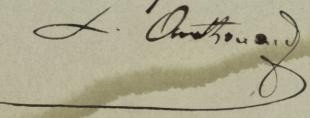 L. Anthouard